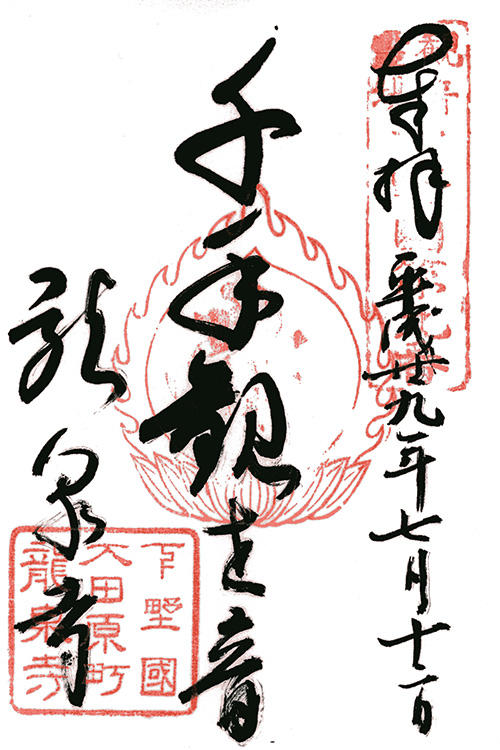 奉拝
平成廿九年七月十二日
千手観世音
龍泉寺
下野國
大田原町
龍泉寺